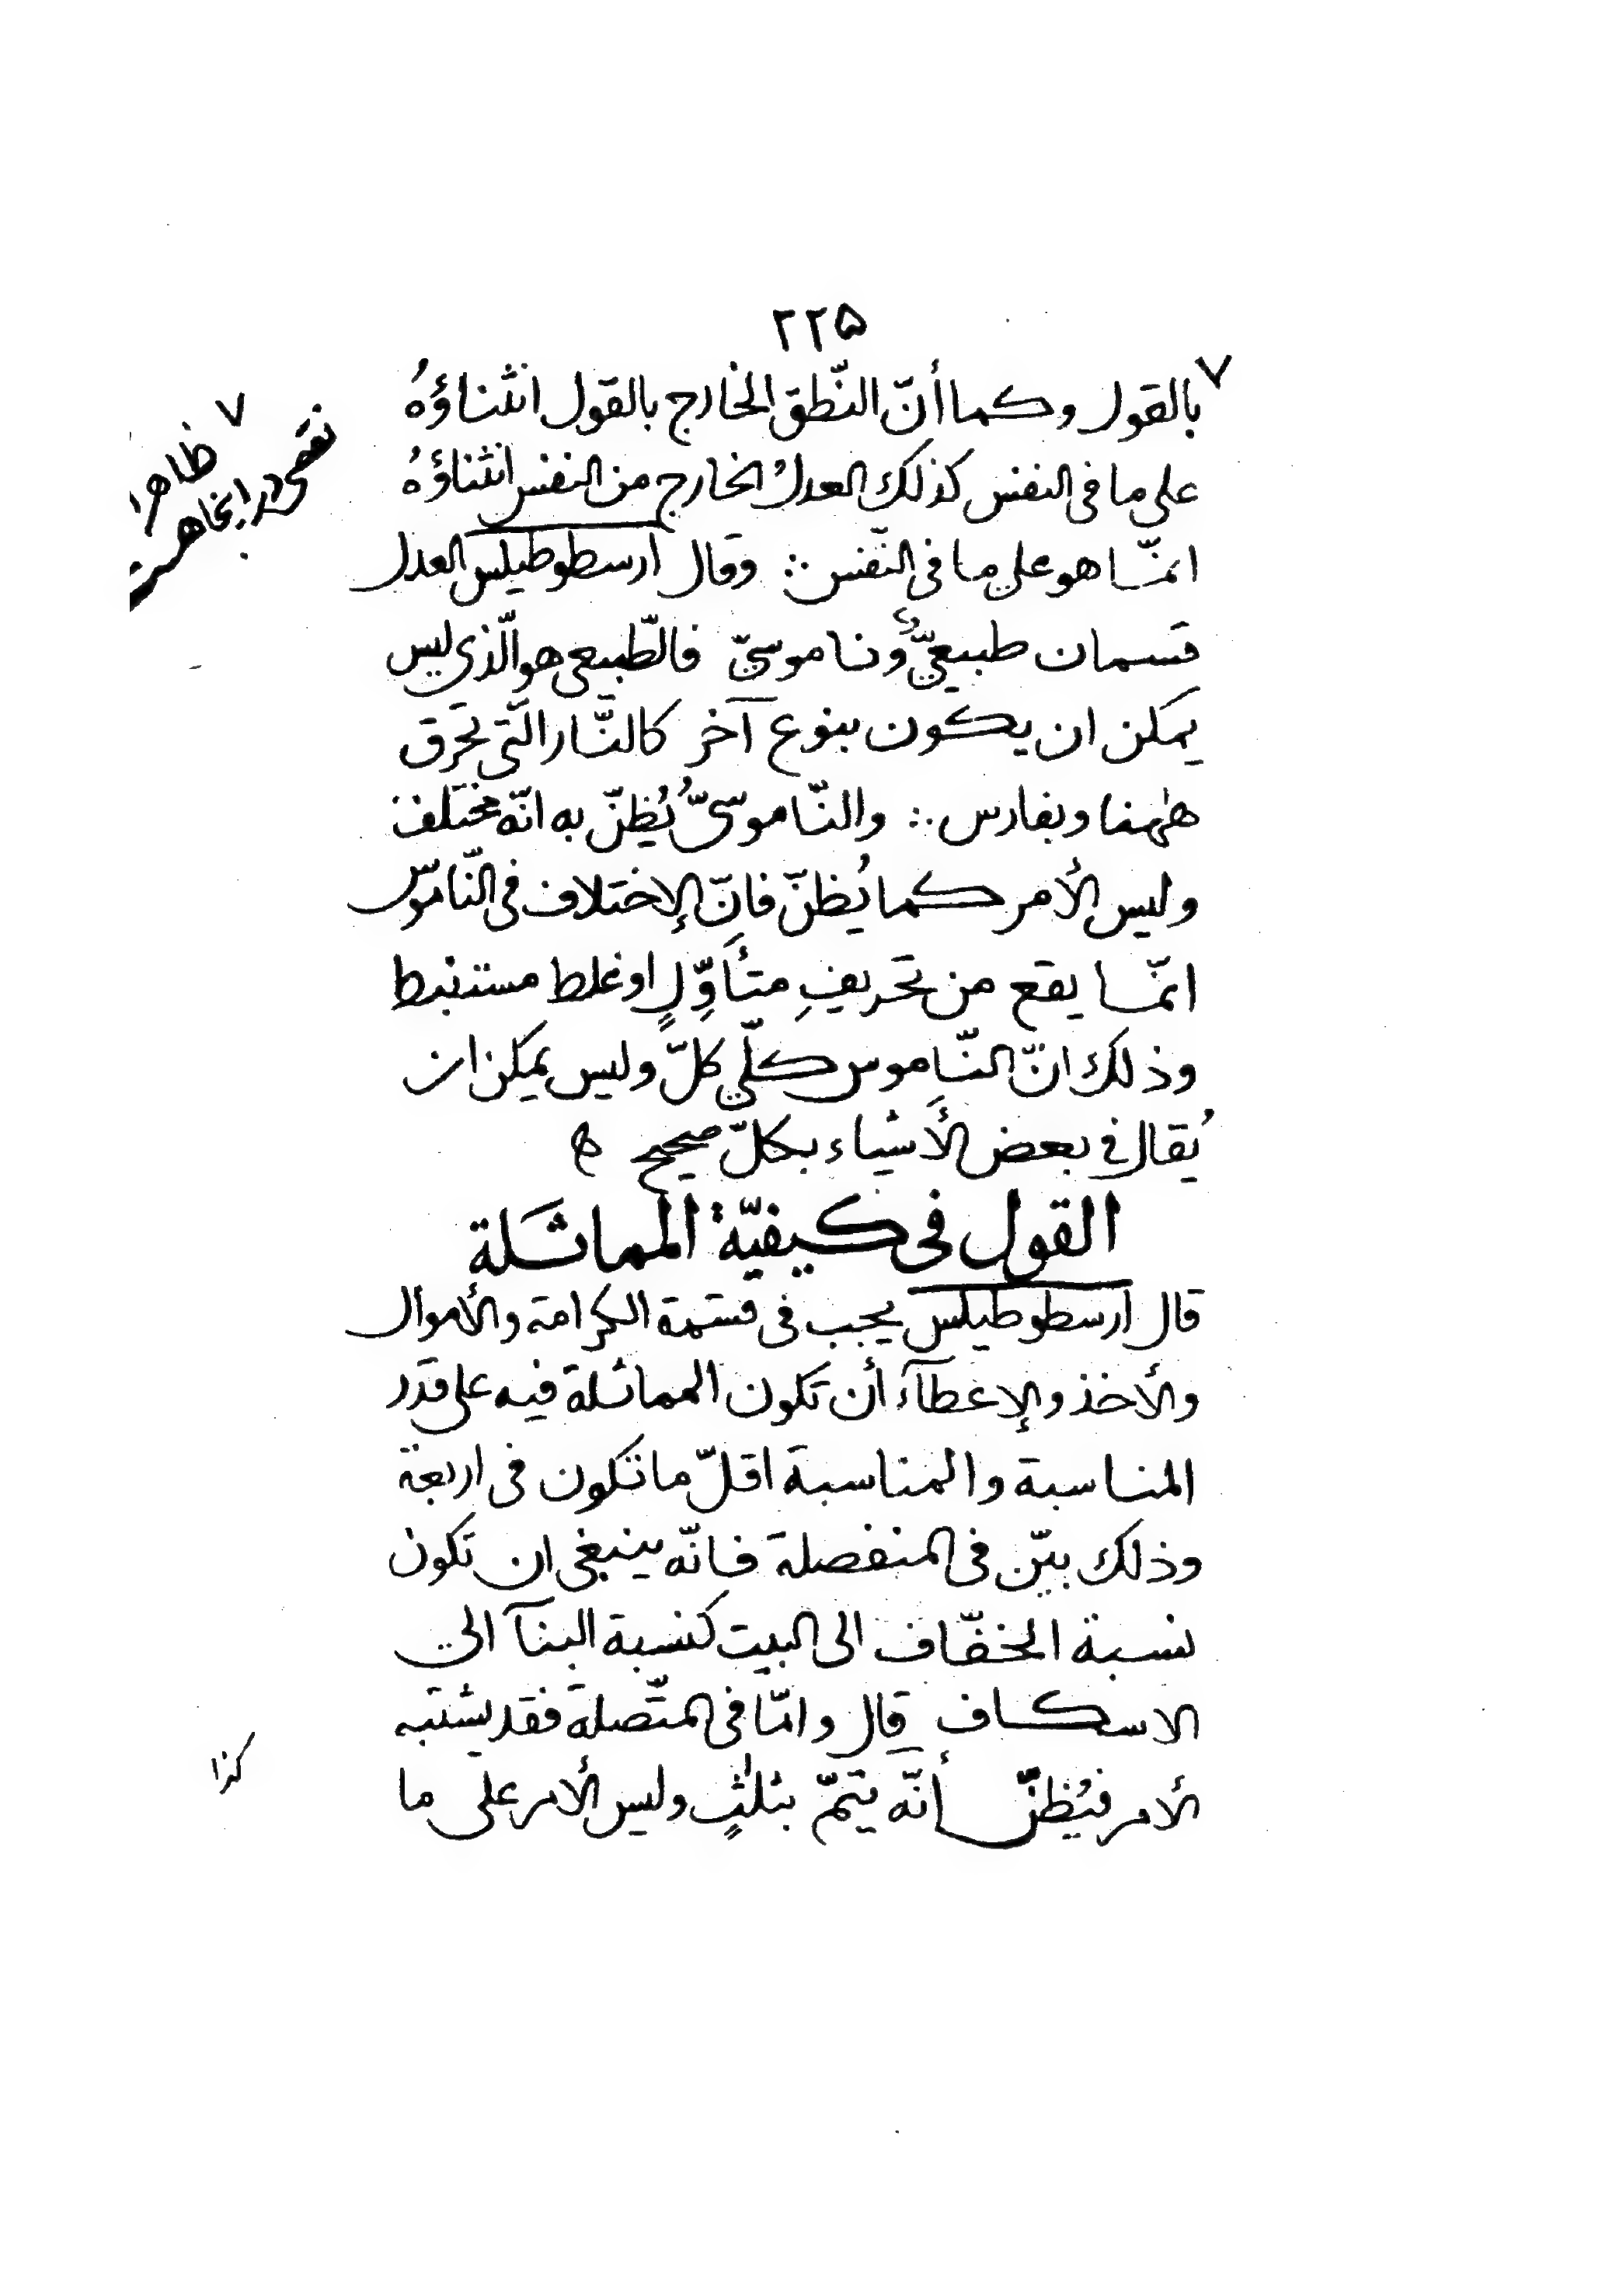 ۲۲۵
٧ بالقول وكما أنّ النّطق الخارج بالقول انثناؤهُ
على ما فى النفس كذلك العدلُ الخارج من النفس انثناؤهُ
انمّا هو على ما فى النّفس ∴ وقال ارسطوطيلس العدل
قسمان طبيعيٌّ وناموسىّ فالطّبيعى هو الّذى ليس
يمكن ان يكون بنوع آخر كالنّار الّتى تحرق
هٰهنا وبفارس ∴ والنّاموسىُّ يُظنّ به انّه مختلف
وليس الأمر كما يُظنّ فانّ الإختلاف فى النّاموس
انمّا يقع من تحريفِ متأَوِّلٍ او غلط مستنبط
وذلك انّ النّاموس كلّي كلّ وليس يمكن ان
يُقال فى بعض الأشياء بكلّ صحيح ه
القول فى كيفيّة المماثَلة
قال ارسطوطيلس يجب فى قسمة الكرامة والأموال
والأخذ والإعطآء أن تكون المماثلة فيه على قدر
المناسبة والمناسبة اقلّ ما تكون فى اربعة
وذلك بيّن فى المنفصلة فانّه ينبغى ان تكون
نسبة الخفّاف الى البيت كنسبة البنآ الى
الاسكاف قال وامّا فى المتّصلة فقد يشتبه
الأمر فيُظنّ أنّه يتمّ بثلثٍ وليس الأمر على ما
٧ ظاهرا
نقصى در اينجا هست
كذا